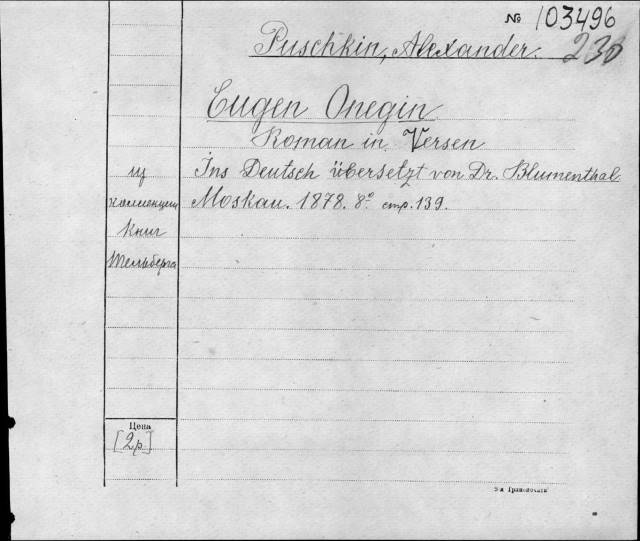 № 103496
Puschkin, Alexander. 230
Eugen Onegin
Roman in Versen
Ins Deutsch übersetzt von Dr. Blumenthal.
Moskau. 1878. 8º стр. 139.
из
коллекции
книг
Цена
[2р]